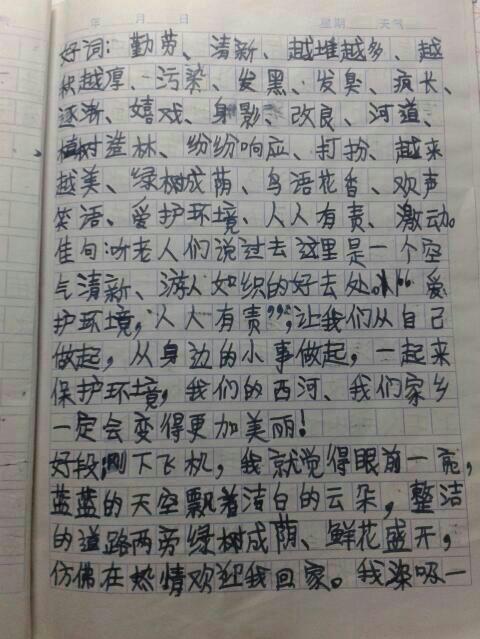 年 月 日 星期 天气
好词：勤劳、清新、越堆越多、越
积越厚、污染、发黑、发臭、疯长、
逐渐、嬉戏、身影、改良、河道、
植树造林、纷纷响应、打扮、越来
越美、绿树成荫、鸟语花香、欢声
笑语、爱护环境、人人有责、激动。
佳句：听老人们说过去这里是一个空
气清新、游人如织的好去处。“爱
护环境，人人有责”，让我们从自己
做起，从身边的小事做起，一起来
保护环境，我们的西河、我们家乡
一定会变得更加美丽！
好段：刚下飞机，我就觉得眼前一亮，
蓝蓝的天空飘着洁白的云朵，整洁
的道路两旁绿树成荫、鲜花盛开，
仿佛在热情欢迎我回家。我深吸一